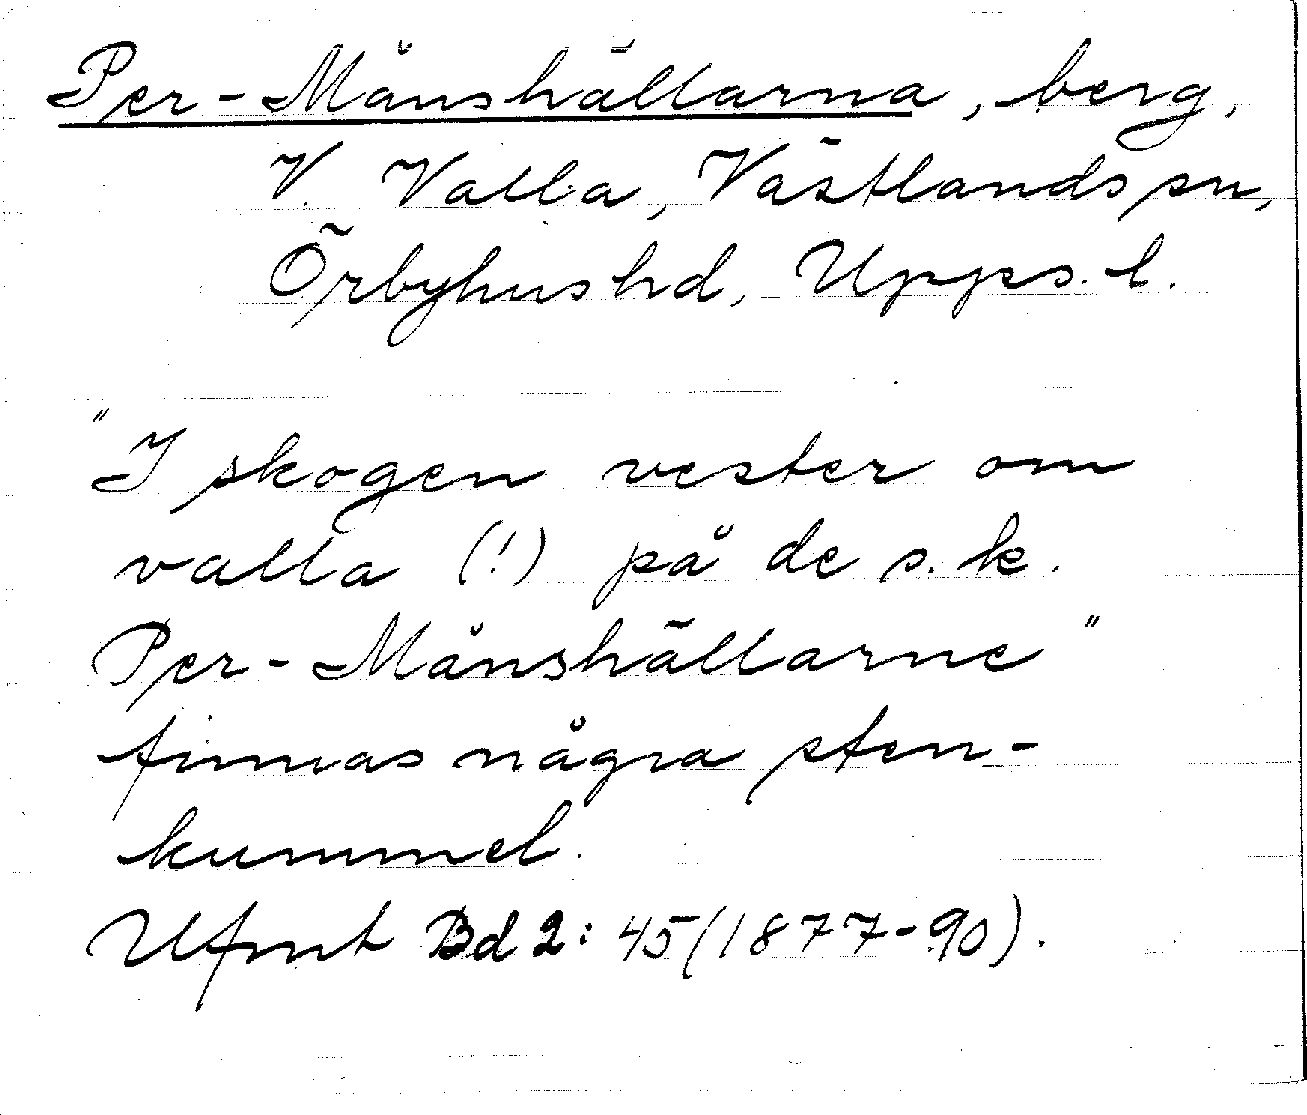 Per-Månshällarna, berg,
V. Valla, Västlands sn,
Örbyhus hd, Upps. l.
"I skogen vester om
valla (!) på de s.k.
Per-Månshällarne"
finnas några sten-
kummel.
Ufmt Bd 2: 45 (1877-90).